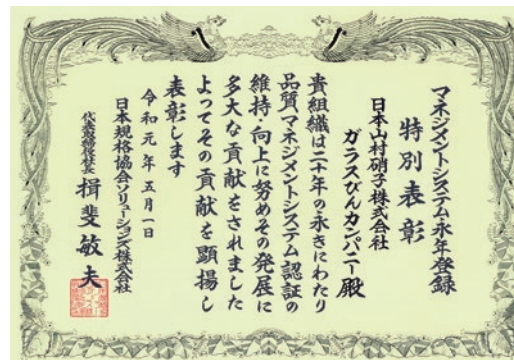 マネジメントシステム永年登録
特別表彰
日本山村硝子株式会社
ガラスびんカンパニー殿
貴組織は二十年の永きにわたり
品質マネジメントシステム認証の
維持・向上に努めその発展に
多大な貢献をされました
よってその貢献を顕揚し
表彰します
令和元年五月一日
日本規格協会ソリューションズ株式会社
代表取締役社長 揖斐敏夫